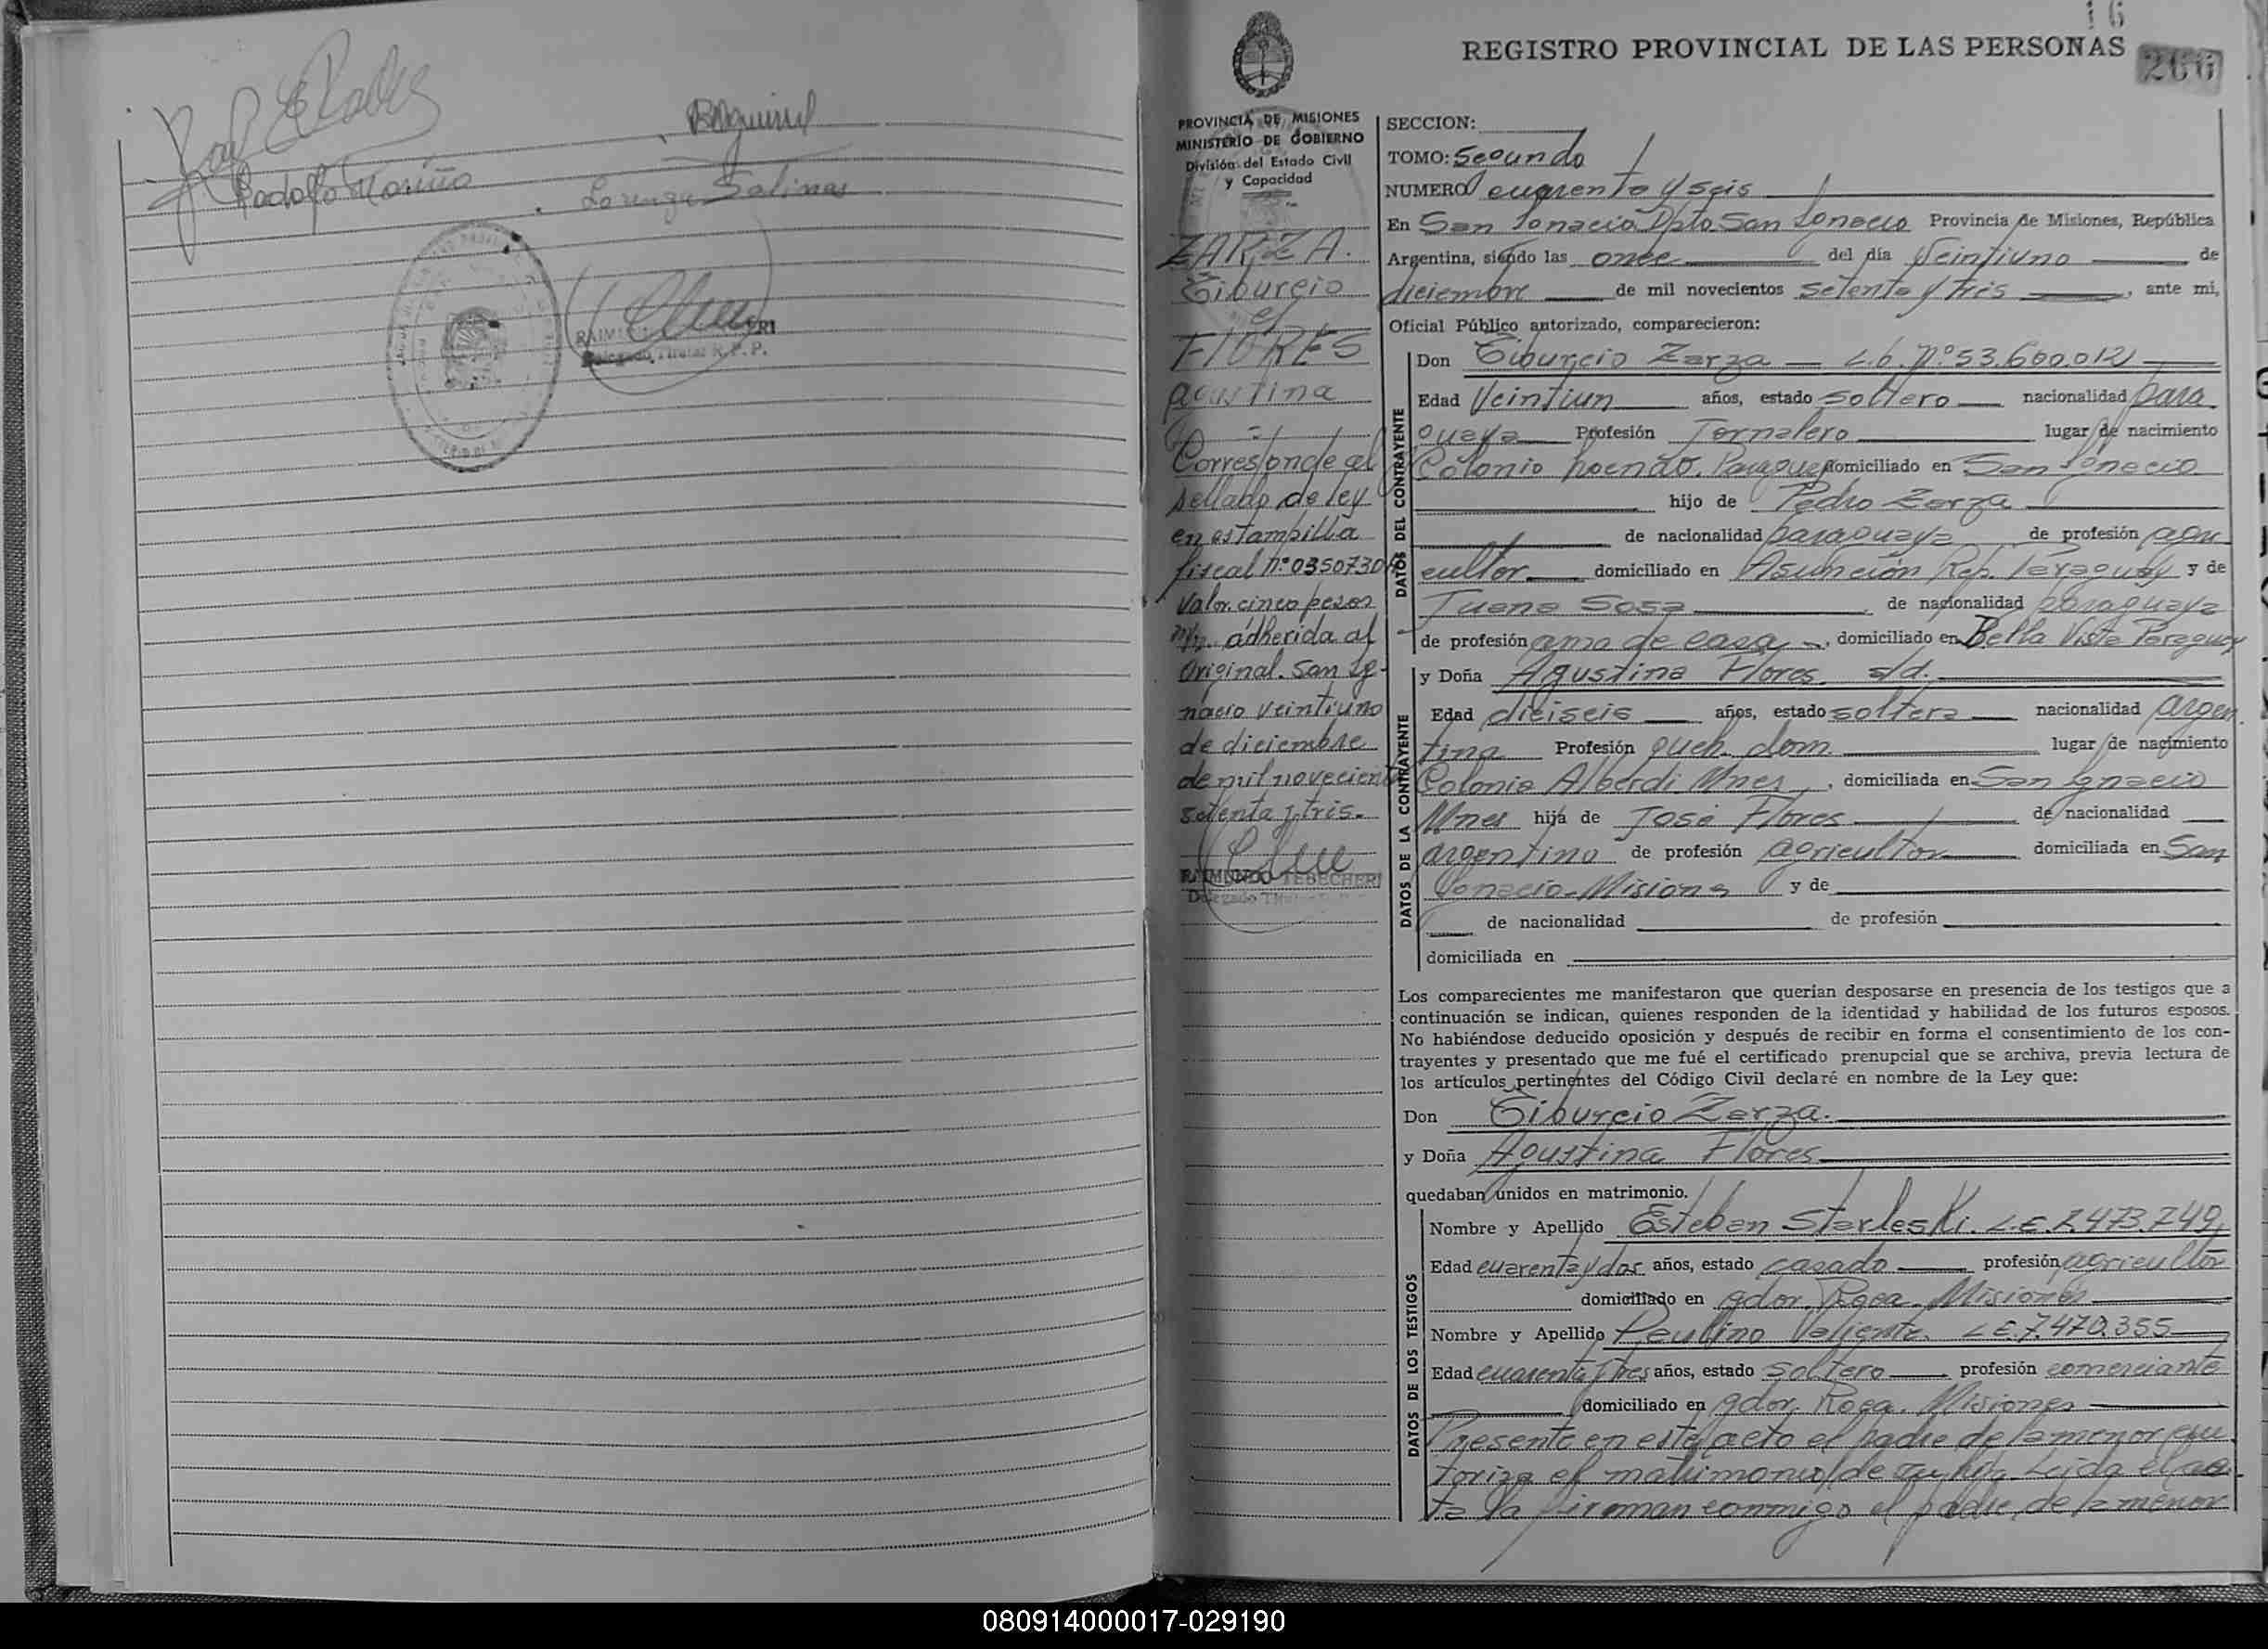 Rodolfo Mariño
Lorenza Salinas
Delegado Titular R. P. P.
16
REGISTRO PROVINCIAL DE LAS PERSONAS
266
PROVINCIA DE MISIONES
MINISTERIO DE GOBIERNO
División del Estado Civil
y Capacidad
ZARZA.
Tiburcio
c/
FLORES
Agustina
Corresponde al
sellado de ley
en estampilla
fiscal nº 0350730
Valor cinco pesos
m/n. adherida al
Original. San Ig-
nacio veintiuno
de diciembre
de mil noveciento
setenta y tres.
RAIMUNDO TEDECHERI
Delegado Titular
SECCION:
TOMO: Segundo
NUMERO cuarenta y seis
En San Ignacio Dpto. San Ignacio Provincia de Misiones, República
Argentina, siendo las once del día Veintiuno de
diciembre de mil novecientos setenta y tres, ante mí,
Oficial Público autorizado, comparecieron:
DATOS DEL CONTRAYENTE
Don Tiburcio Zarza — c.b. Nº 53.600.012
Edad Veintiun años, estado soltero nacionalidad para
guaya Profesión Jornalero lugar de nacimiento
Colonia hoendo. Paraguay domiciliado en San Ignacio
hijo de Pedro Zarza
de nacionalidad paraguaya de profesión agri
cultor domiciliado en Asunción Rep. Paraguay y de
Juana Sosa de nacionalidad paraguaya
de profesión ama de casa, domiciliado en Bella Vista Paraguay
DATOS DE LA CONTRAYENTE
y Doña Agustina Flores. s/d.
Edad dieiseis años, estado soltera nacionalidad argen
tina Profesión queh. dom. lugar de nacimiento
Colonia Alberdi Mnes, domiciliada en San Ignacio
Mnes hija de José Flores de nacionalidad
argentino de profesión agricultor domiciliada en San
Ignacio-Misiones y de
de nacionalidad de profesión
domiciliada en
Los comparecientes me manifestaron que querían desposarse en presencia de los testigos que a
continuación se indican, quienes responden de la identidad y habilidad de los futuros esposos.
No habiéndose deducido oposición y después de recibir en forma el consentimiento de los con-
trayentes y presentado que me fué el certificado prenupcial que se archiva, previa lectura de
los artículos pertinentes del Código Civil declaré en nombre de la Ley que:
Don Tiburcio Zarza.
y Doña Agustina Flores
quedaban unidos en matrimonio.
DATOS DE LOS TESTIGOS
Nombre y Apellido Esteban Starleski. L.E. 7.473.749
Edad cuarenta y dos años, estado casado profesión agricultor
domiciliado en gdor. Roca. Misiones
Nombre y Apellido Paulino Valiente. L.E. 7.470.355
Edad cuarenta y tres años, estado soltero profesión comerciante
domiciliado en gdor. Roca. Misiones
Presente en este acto el padre de la menor au
toriza el matrimonio de su hija. Leida el ac-
ta la firman conmigo el padre de la menor
080914000017-029190